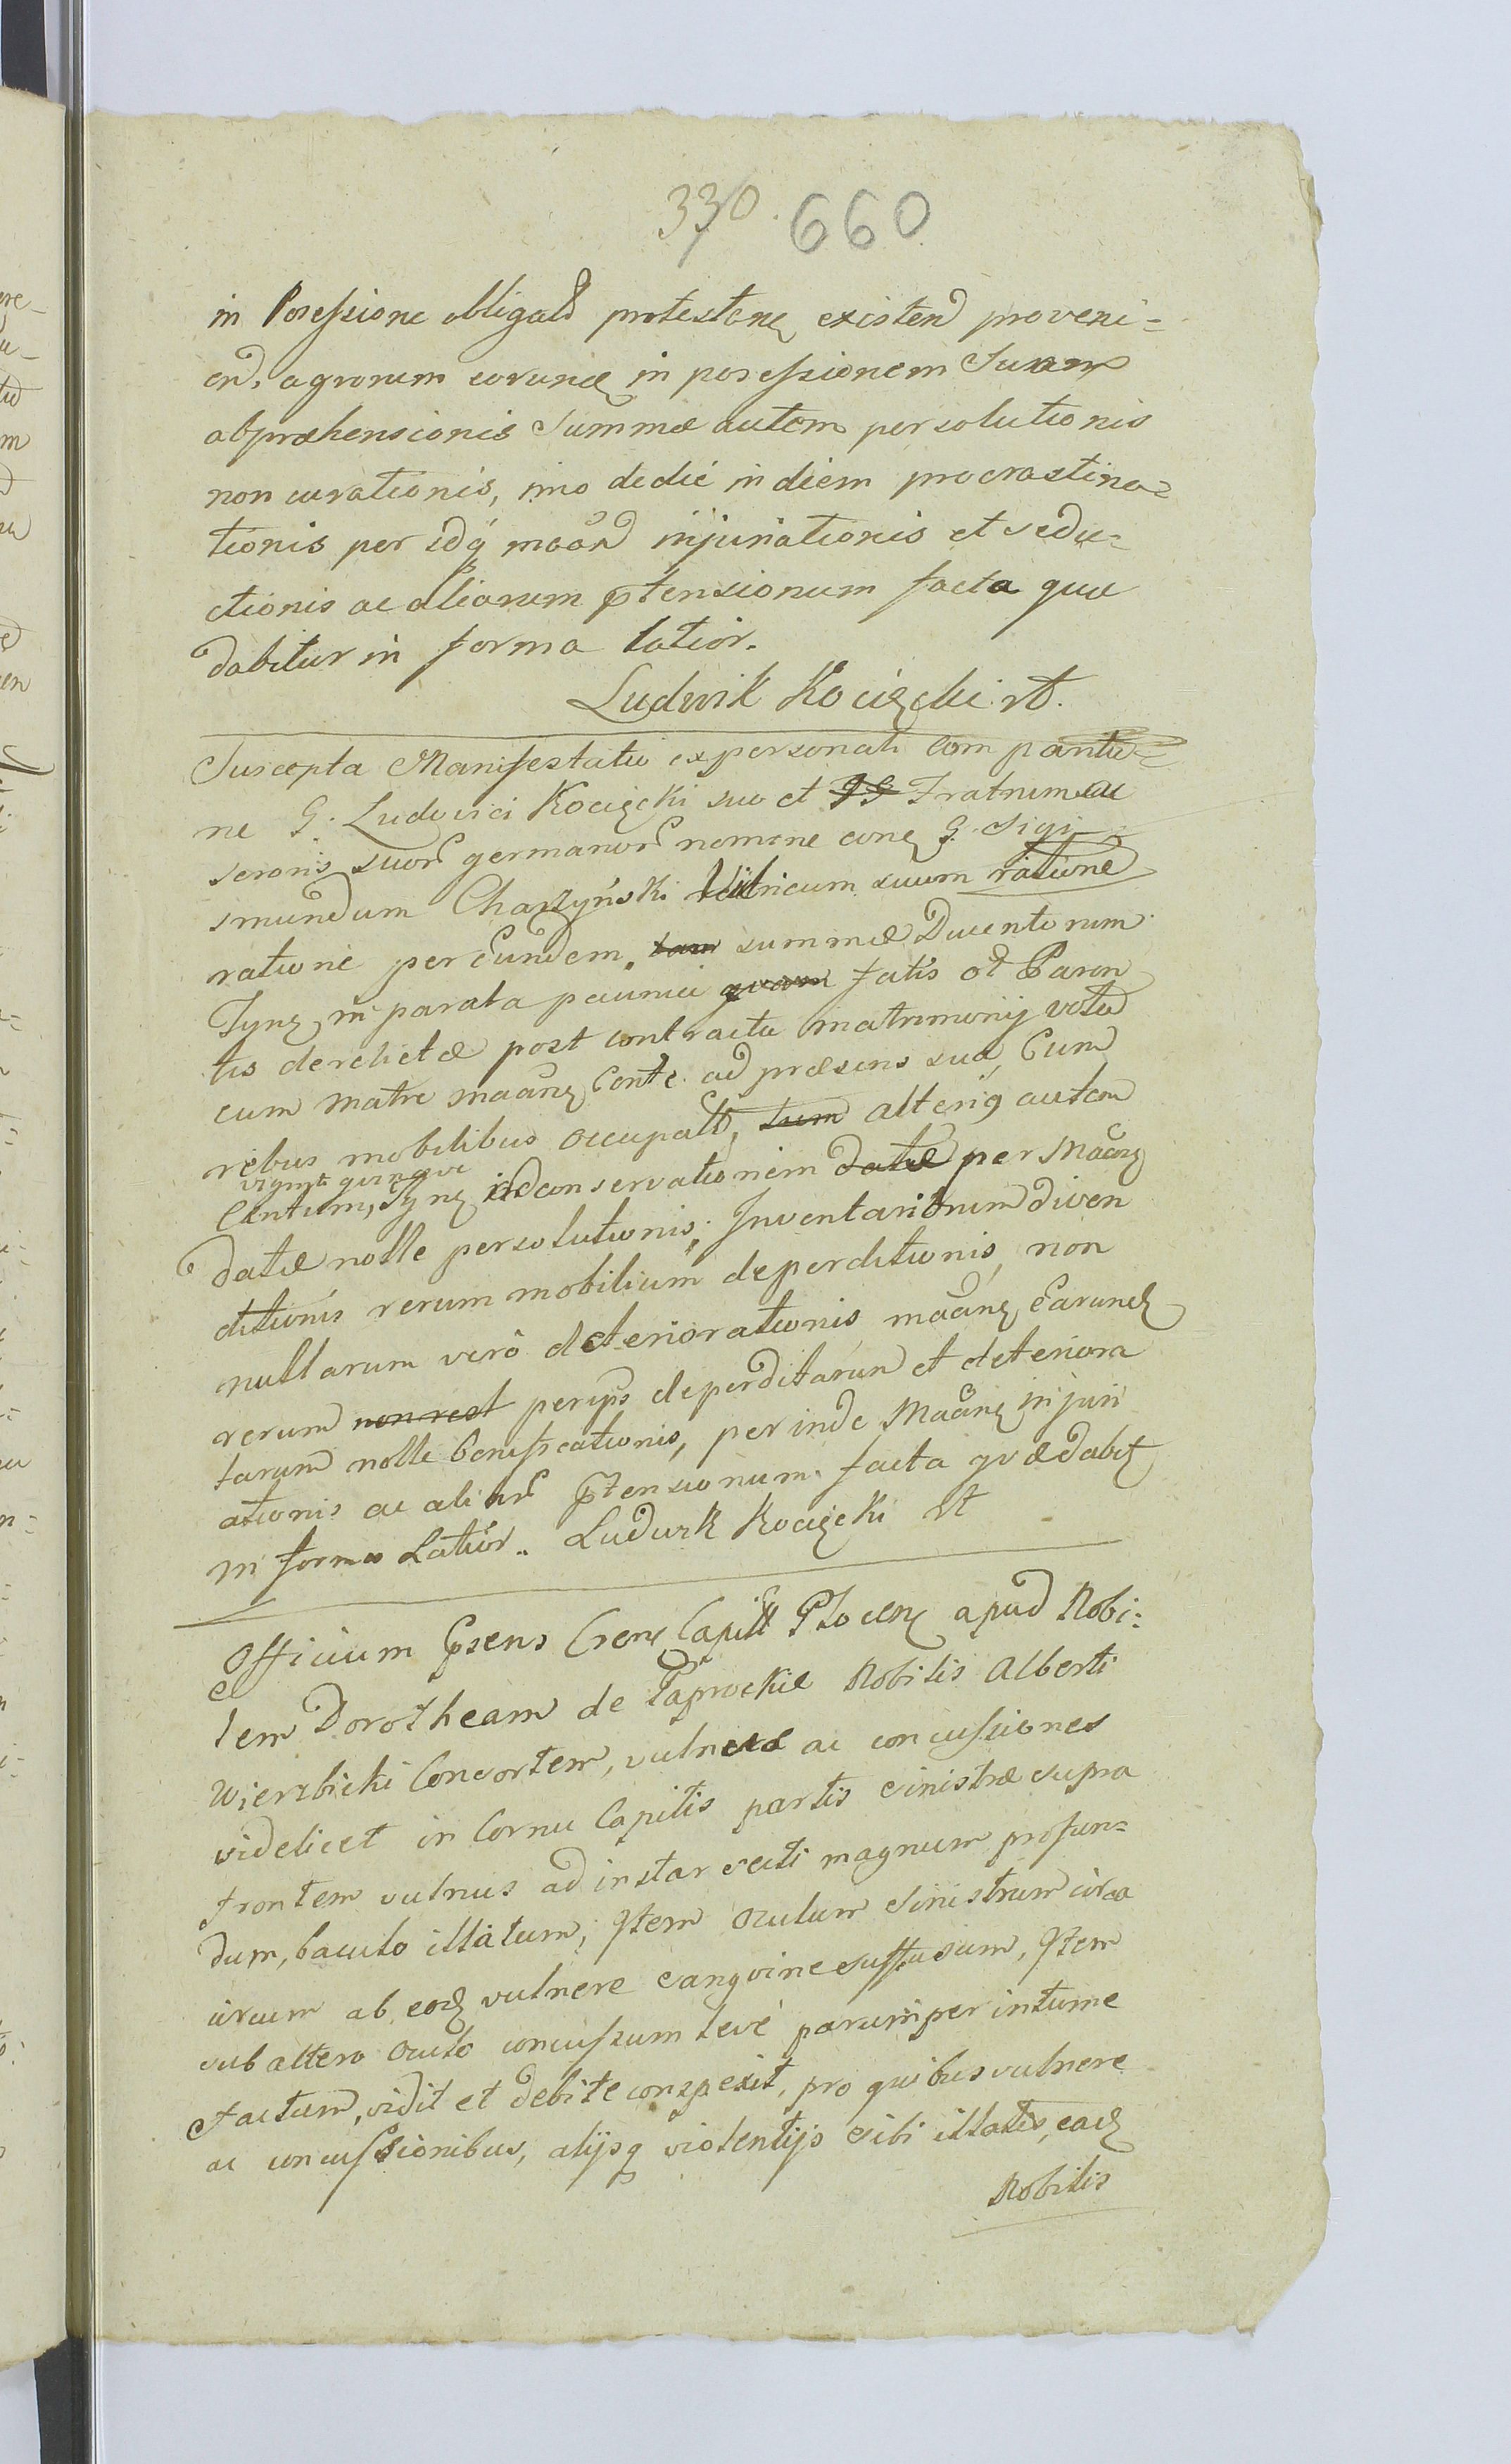 330. 660
in Possessione obligato protestane existen proveni=
en, agrorum eorundem in possessionem Suam
abpræhensionis Summæ autem persolutionis
non curationis, imo de die in diem procrastina=
tionis per idq maand injuriationis et sedu=
ctionis ac aliarum ptensionum facta quæ
dabitur in forma latior.
Ludwik Kocięcki rt.
Suscepta Manifestatio ex personali comparitio=
ne G. Ludovici Kocięcki suo et GG Fratrum ac
sororis suor germanor nomine cone G. Sigi
smundum Charzyński Vitricum suum ratione
ratione per Eundem, tam summæ Ducentorum
Tynf in parata pecunia quam fatis ol Paren
tis derelictæ post contractu matrimonij votu
cum Matre maane Conte ad præsens sua, Cum
rebus mobilibus occupatt, tum alterius autem
viginti quinque
Centum, Tynf ad conservationem datæ per Maane
datæ nolle persolutionis, Inventariorum diven
ditionis rerum mobilium deperditionis, non
nullarum verò deteriorationis maane Earundem
rerum non rest per ips deperditarum et deteriora
tarum nolle bonificationis, perinde Maane injuri
ationis ac aliar ptensionum facta quæ dabit
in forma Latior. Ludwik Kocięcki rt
Officium Psens Crense Capitt Plocen apud Nobi=
lem Dorotheam de Paprockie Nobilis Alberti
Wierzbicki Consortem, vulnera ac concussiones
videlicet in Cornu Capitis partis sinistræ supra
frontem vulnus ad instar secti magnum profun=
dum, baculo illatum, Item oculum sinistrum circa
circum ab eod vulnere sangvine suffusum, Item
sub altero oculo concussum leve parumper intume
factum, vidit et debite conspexit, pro quibus vulnere
ac concussionibus, alijsq violentijs sibi illatis, ead
Nobilis